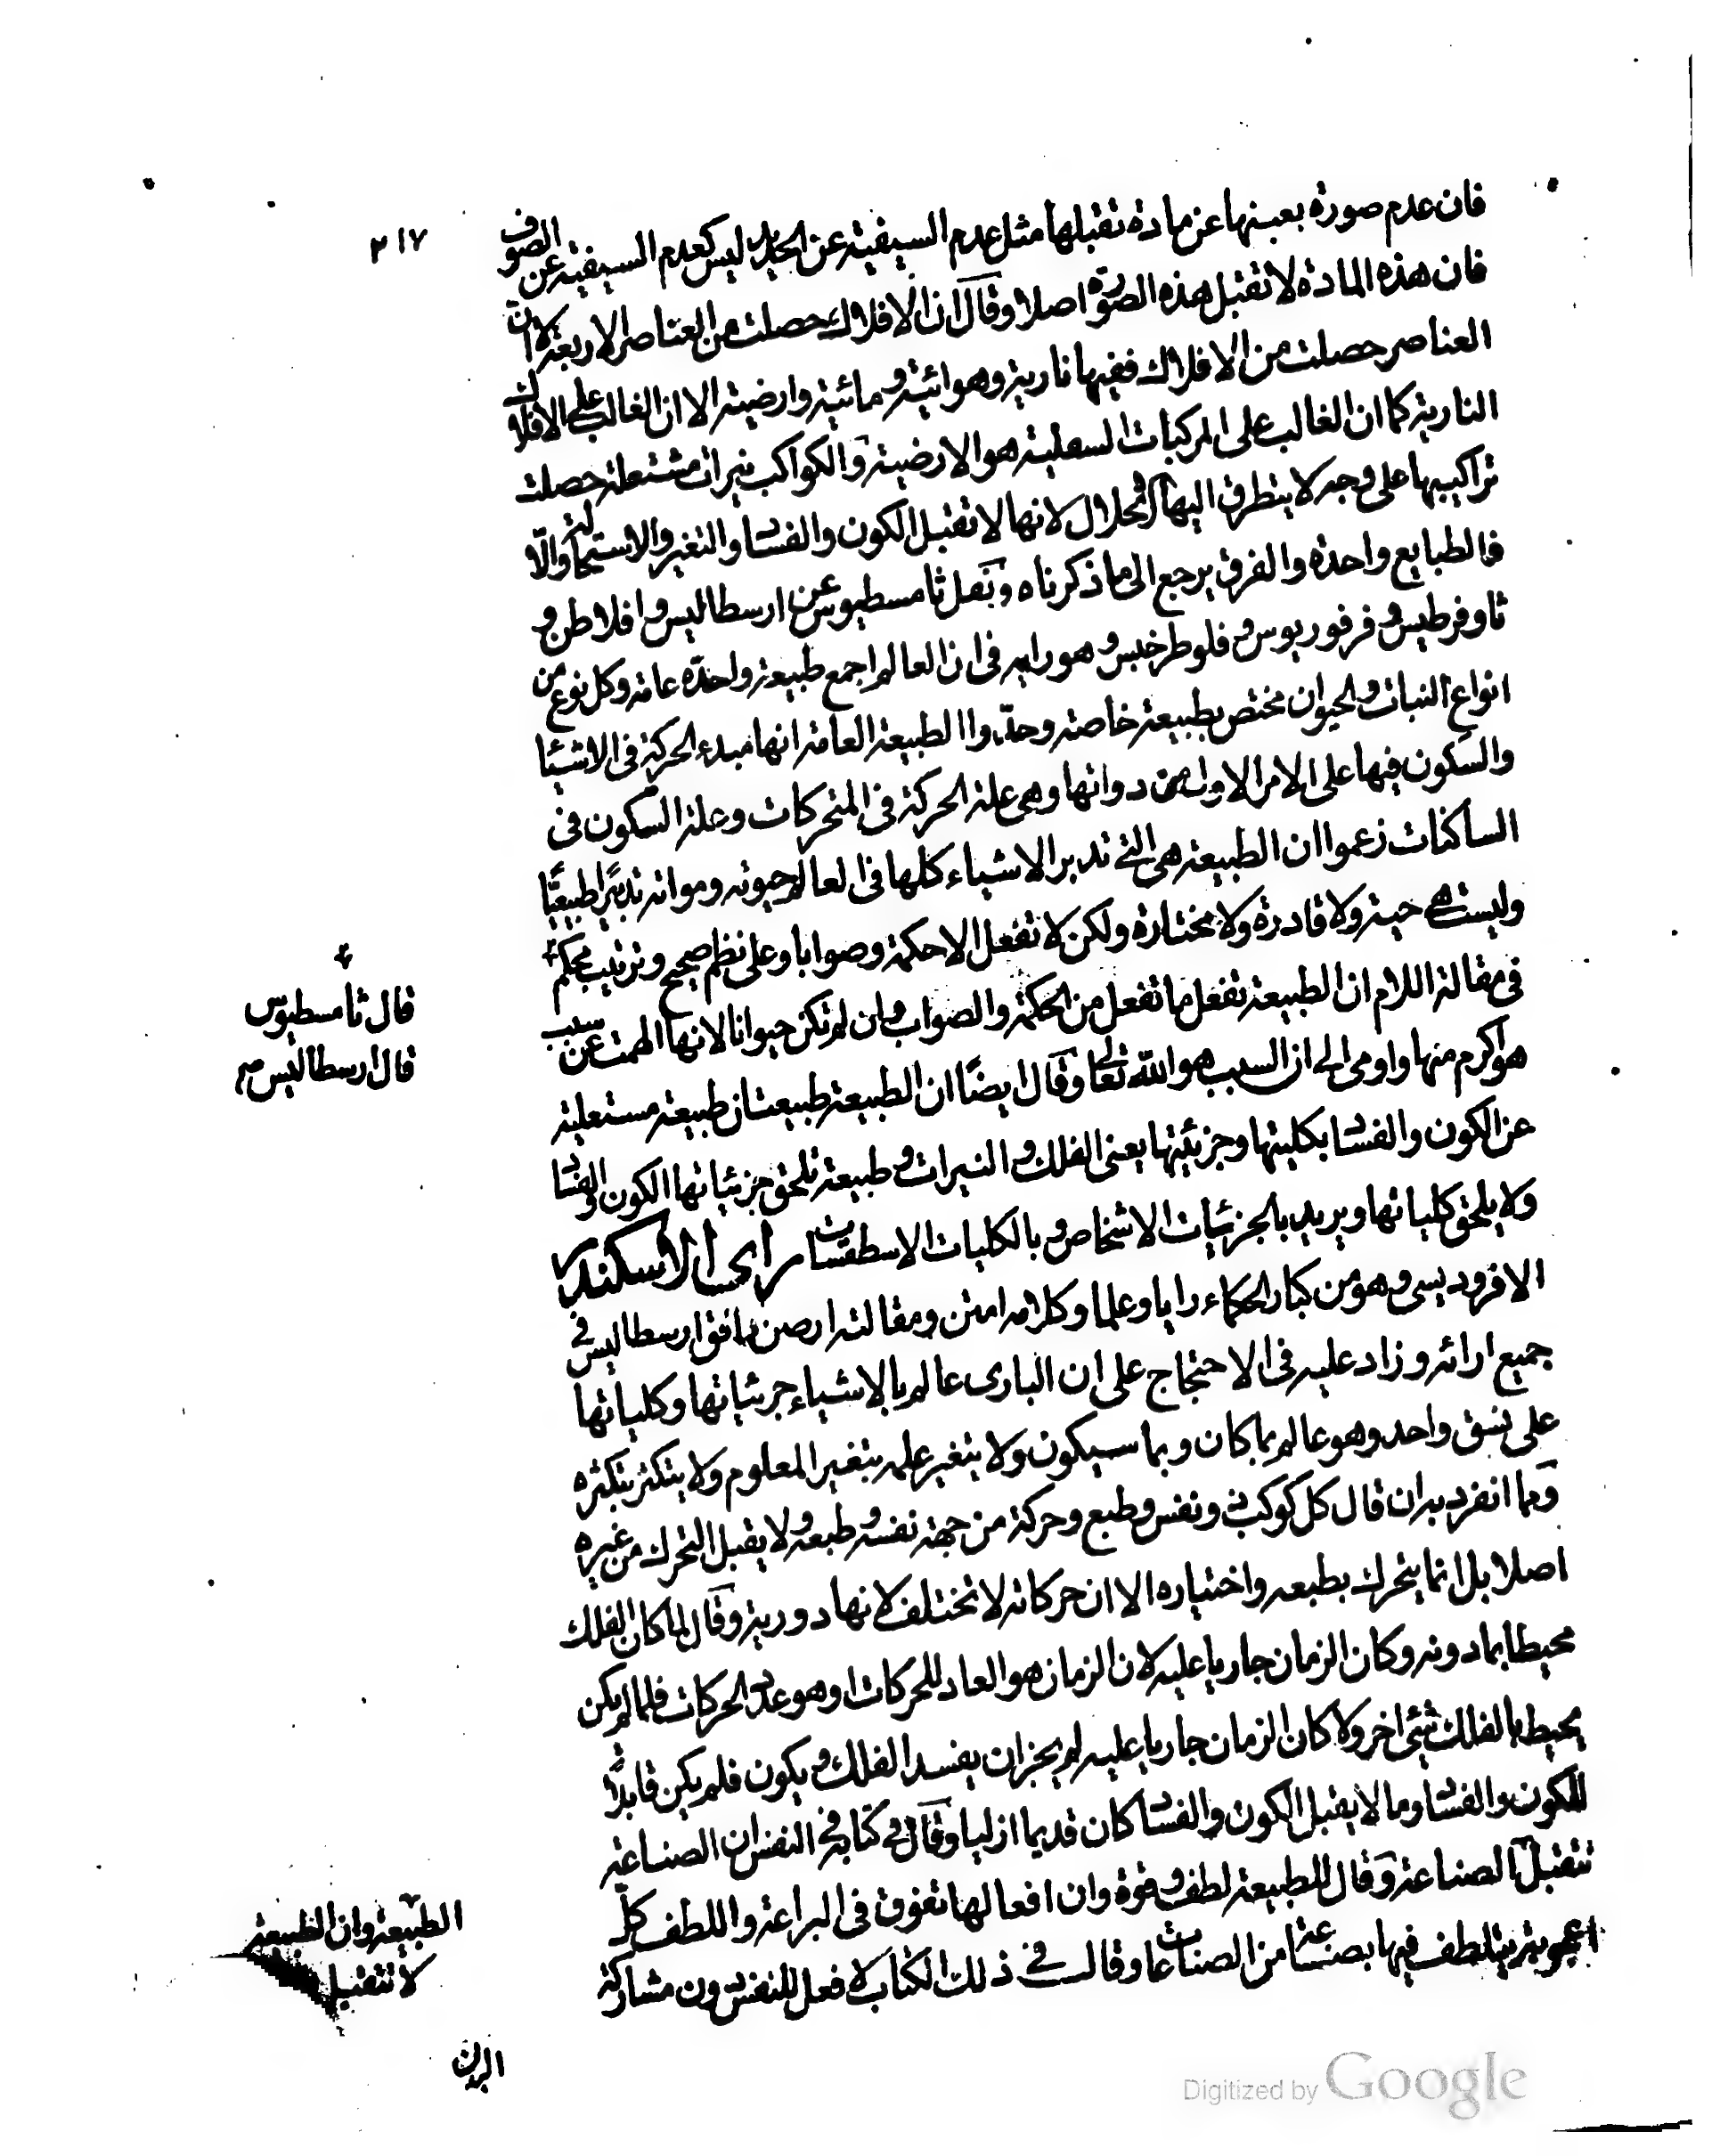 ٢١٧
فان عدم صورة بعينها عن مادة تقبلها مثل عدم السيفية عن الحديد ليس كعدم السيفية عن الصوف
فان هذه المادة لا تقبل هذه الصورة اصلا وقال ان الافلاك حصلت من العناصر الاربعة لا ان
العناصر حصلت من الافلاك ففيها نارية وهوائية ومائية وارضية الا ان الغالب على الافلاك
النارية كما ان الغالب على المركبات السفلية هو الارضية والكواكب نيرات مشتعلة حصلت
تراكيبها على وجه لا يتطرق اليها انحلال لانها لا تقبل الكون والفساد والتغير والاستحالة والّا
فالطبايع واحدة والفرق يرجع الى ما ذكرناه ونقل ثامسطيوس عن ارسطاليس وافلاطن و
ثاوفرطيس و فرفوريوس و فلوطرخيس وهو رايه فى ان العالم اجمع طبيعة واحدة عامة وكل نوع من
انواع النبات والحيوان مختص بطبيعة خاصة وحدّوا الطبيعة العامة انها مبدء الحركة فى الاشيا
والسكون فيها على الامر الاول من ذواتها وهى علة الحركة فى المتحركات وعلة السكون فى
الساكنات زعموا ان الطبيعة هى التى تدبر الاشياء كلها فى العالم حيوته ومواته تدبيرًا طبيعيًّا
وليست هى حية ولا قادرة ولا مختارة ولكن لا تفعل الا حكمة وصوابا وعلى نظم صحيح وترتيب محكم
قال ثامسطيوس
قال ارسطاليس صح
فى مقالة اللام ان الطبيعة تفعل ما تفعل من الحكمة والصواب وان لم تكن حيوانا لانها الهمت عن سبب
هو اكرم منها واومى الى ان السبب هو الله تعالى وقال ايضًا ان الطبيعة طبيعتان طبيعة مستعلية
عن الكون والفساد بكليتها وجزئيتها يعنى الفلك و النيرات و طبيعة تلحق جزئياتها الكون والفساد
ولا يلحق كلياتها ويريد بالجزئيات الاشخاص و بالكليات الاسطقسات راى الاسكندر
الافروديسى وهو من كبار الحكماء رايا وعلما وكلامه امتن ومقالته ارصن وافق ارسطاليس فى
جميع ارائه وزاد عليه فى الاحتجاج على ان البارى عالم بالاشياء جزئياتها وكلياتها
على نسق واحد وهو عالم بما كان وبما سيكون ولا يتغير علمه بتغير المعلوم ولا يتكثر بتكثره
ومما انفرد به ان قال كل كوكب ذو نفس وطبع وحركة من جهة نفسه و طبعه ولا يقبل التحرك من غيره
اصلا بل انما يتحرك بطبعه واختياره الا ان حركاته لا تختلف لانها دورية وقال لما كان الفلك
محيطا بما دونه وكان الزمان جاريا عليه لان الزمان هو العاد للحركات او هو عدد الحركات فلما لم يكن
يحيط بالفلك شئ اخر ولا كان الزمان جاريا عليه لم يجز ان يفسد الفلك ويكون فلم يكن قابلًا
للكون والفساد وما لا يقبل الكون والفساد كان قديما ازليا وقال فى كتابه فى النفس ان الصناعة
تتقبل الطبيعة وان الطبيعة
لا تتقبل
الصناعة وقال للطبيعة لطف و قوة وان افعالها تفوق فى البراعة واللطف كلّ
اعجوبة يتلطف فيها بصناعة من الصناعات وقال فى ذلك الكتاب لا فعل للنفس دون مشاركة
البدن
Digitized by Google